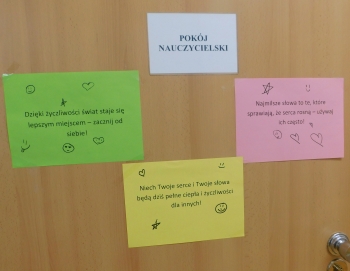 POKÓJ
NAUCZYCIELSKI
Dzięki życzliwości świat staje się
lepszym miejscem – zacznij od
siebie!
Najmilsze słowa to te, które
sprawiają, że serce rośnie – używaj
ich często!
Niech Twoje serce i Twoje słowa
będą dziś pełne ciepła i życzliwości
dla innych!